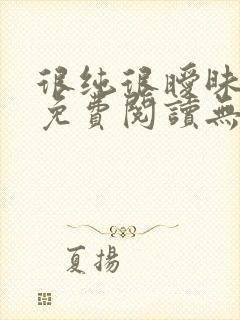 很纯很曖昧
免費閱讀無
夏揚